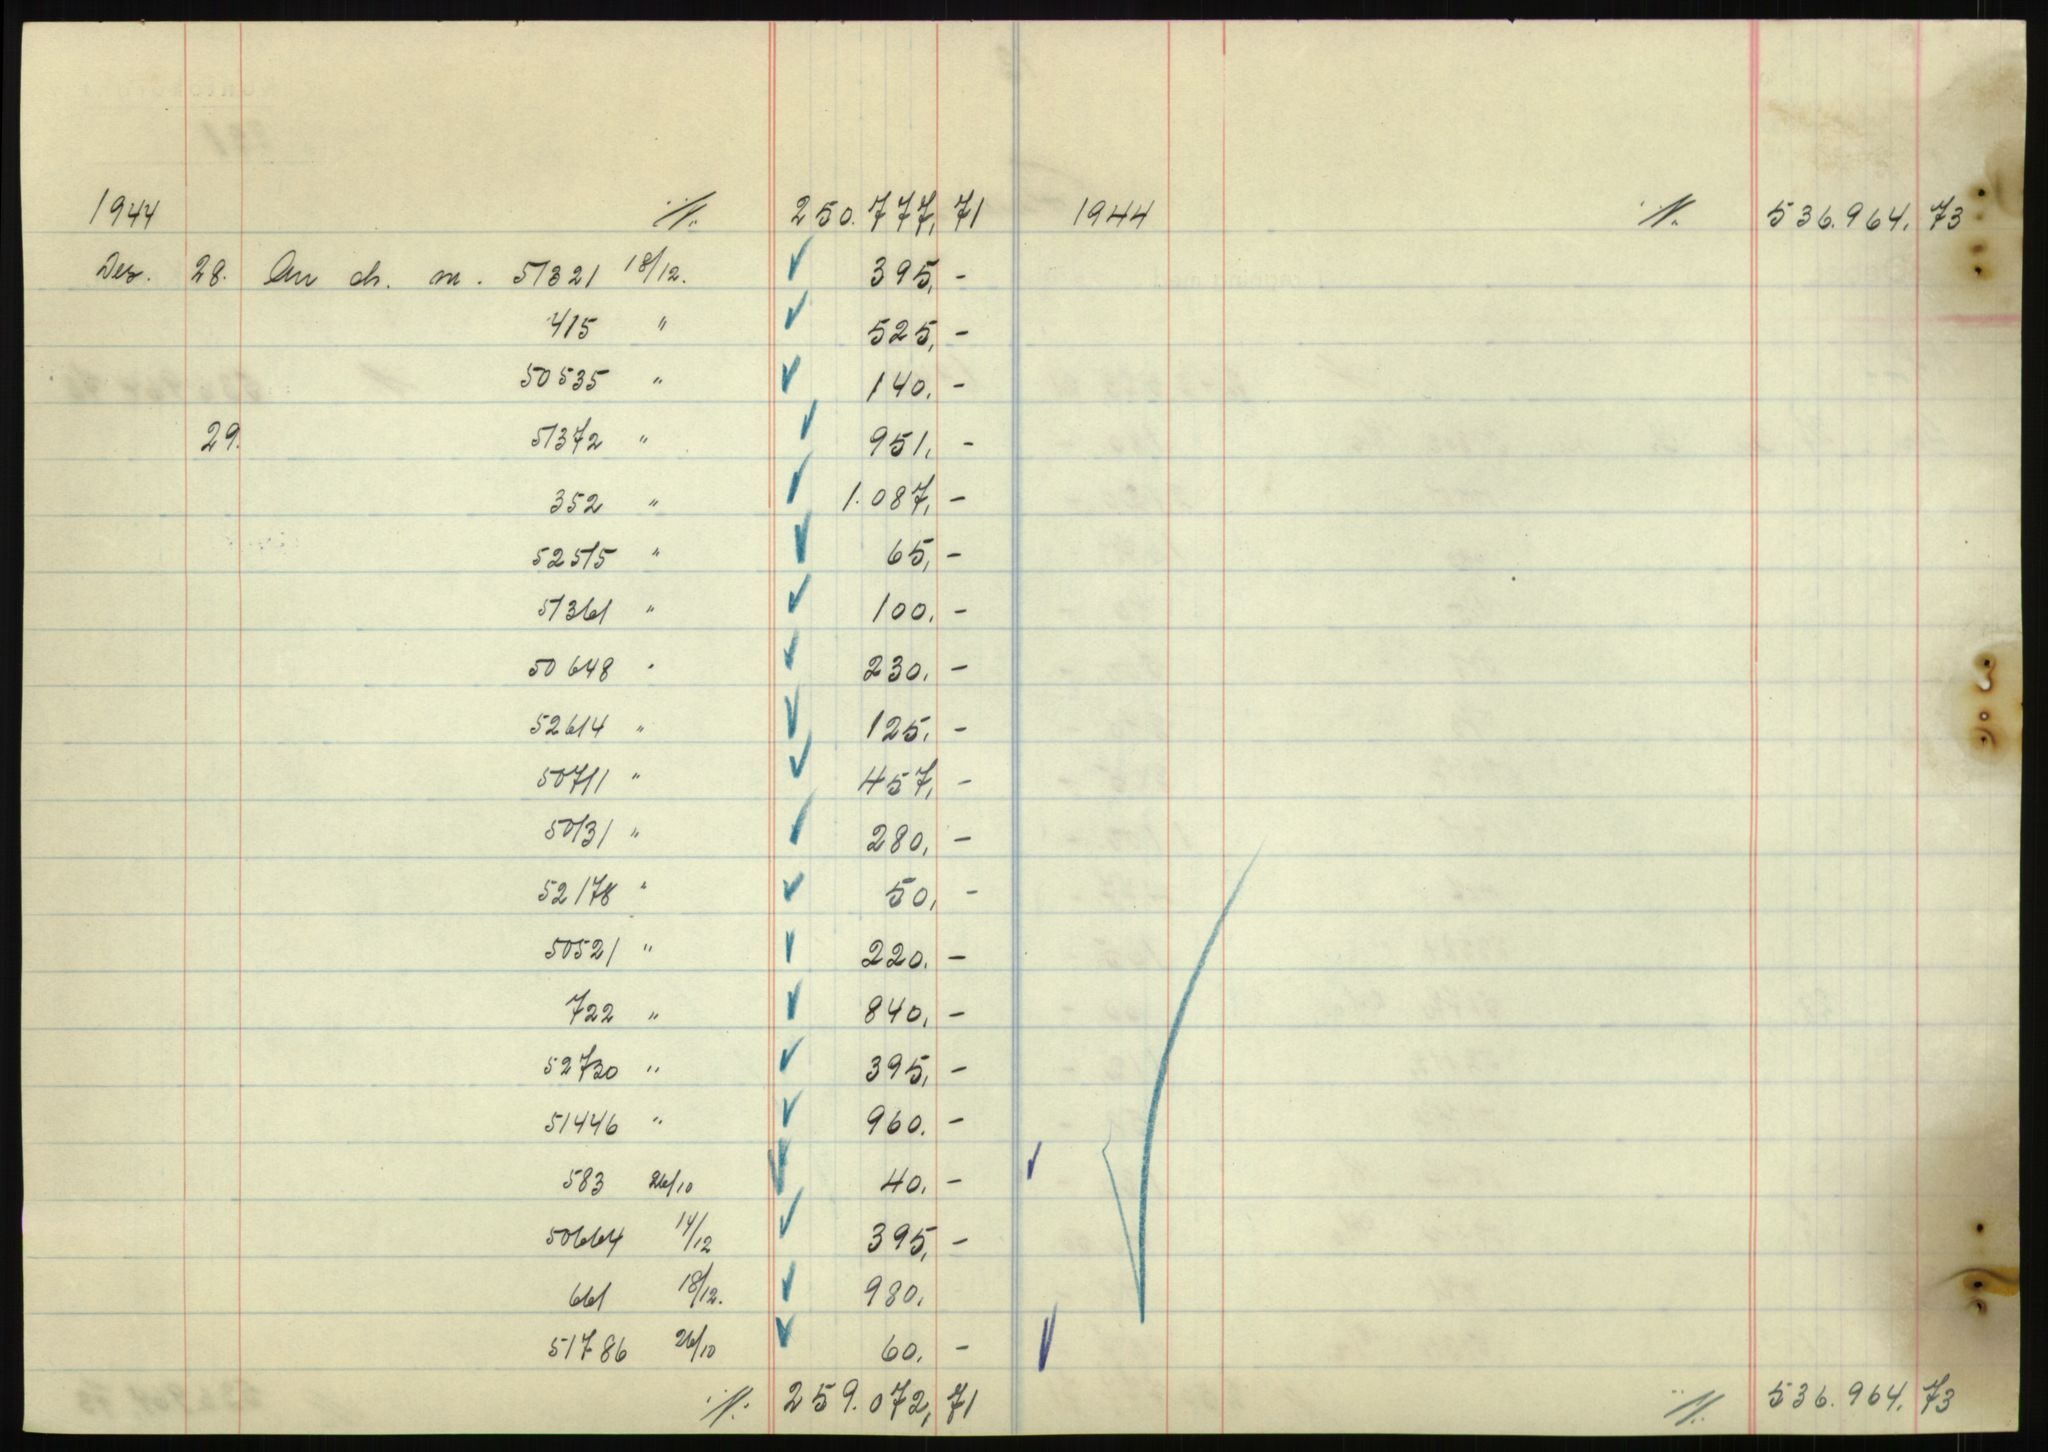 1944 ·/·. 250.777,71 1944 ·/·. 536.964,73
Dez. 28. An ch. m. 51321 18/12. 395,-
415 " 525,-
50535 " 140,-
29. 51372 " 951,-
352 " 1.087,-
52515 " 65,-
51361 " 100,-
50648 " 230,-
52614 " 125,-
50711 " 457,-
50131 " 280,-
52178 " 50,-
50521 " 220,-
722 " 840,-
52730 " 395,-
51446 " 960,-
583 26/10 40,-
50664 14/12 395,-
661 18/12. 980,
51786 26/10 60,-
·/·. 259.072,71 ·/·. 536.964,73